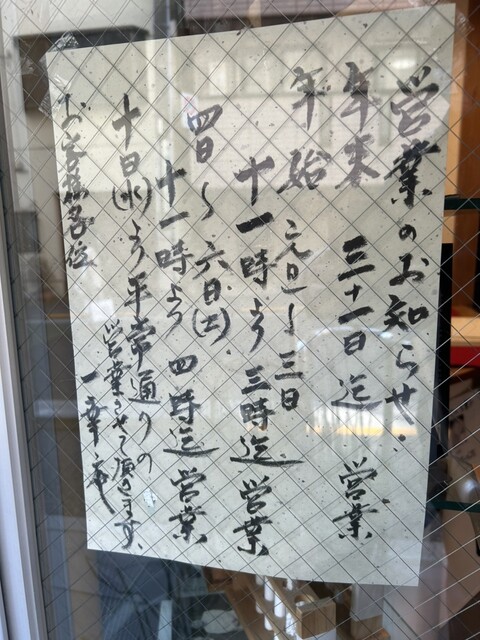 営業のお知らせ.
年末 三十一日迄 営業
年始 元日〜三日
十一時より三時迄営業
四日〜六日(土)
十一時より四時迄営業
十日(水)より平常通りの
営業させて頂きます、
お客様各位 一幸庵